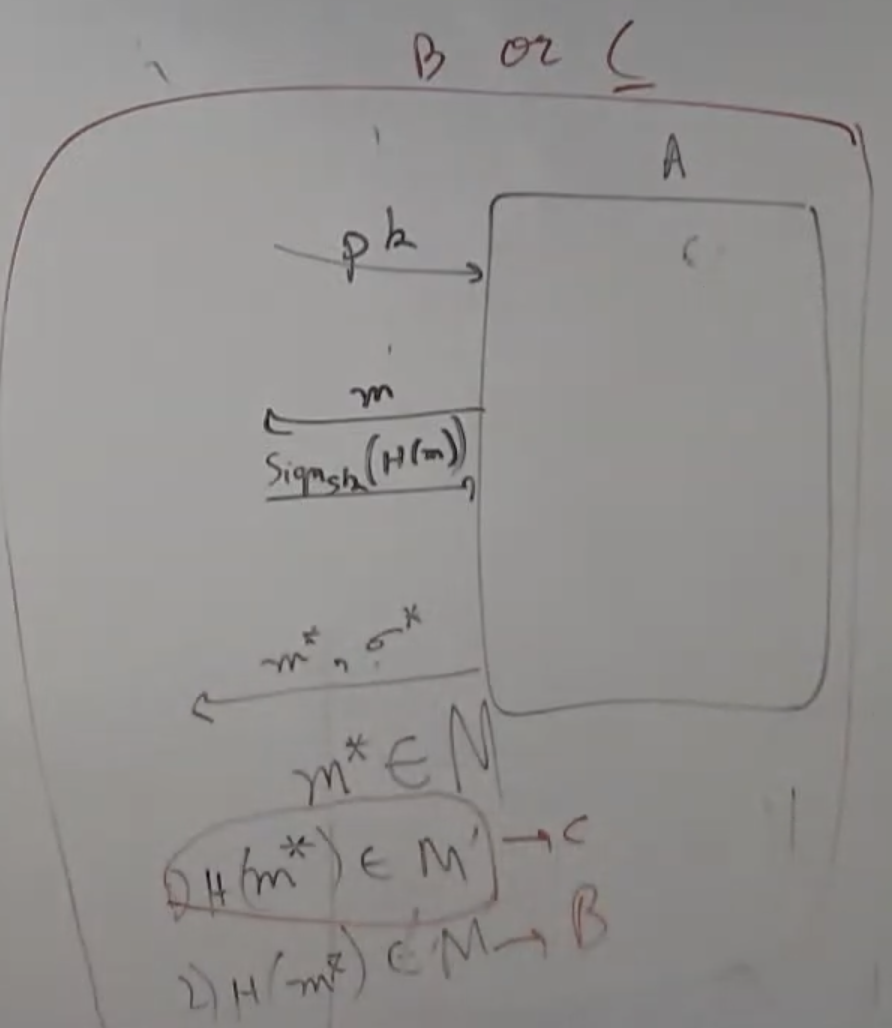 B or C
A
pk
m
Sign_sk(H(m))
m*, σ*
m* ∈ M
1) H(m*) ∈ M' → C
2) H(m*) ∈ M → B